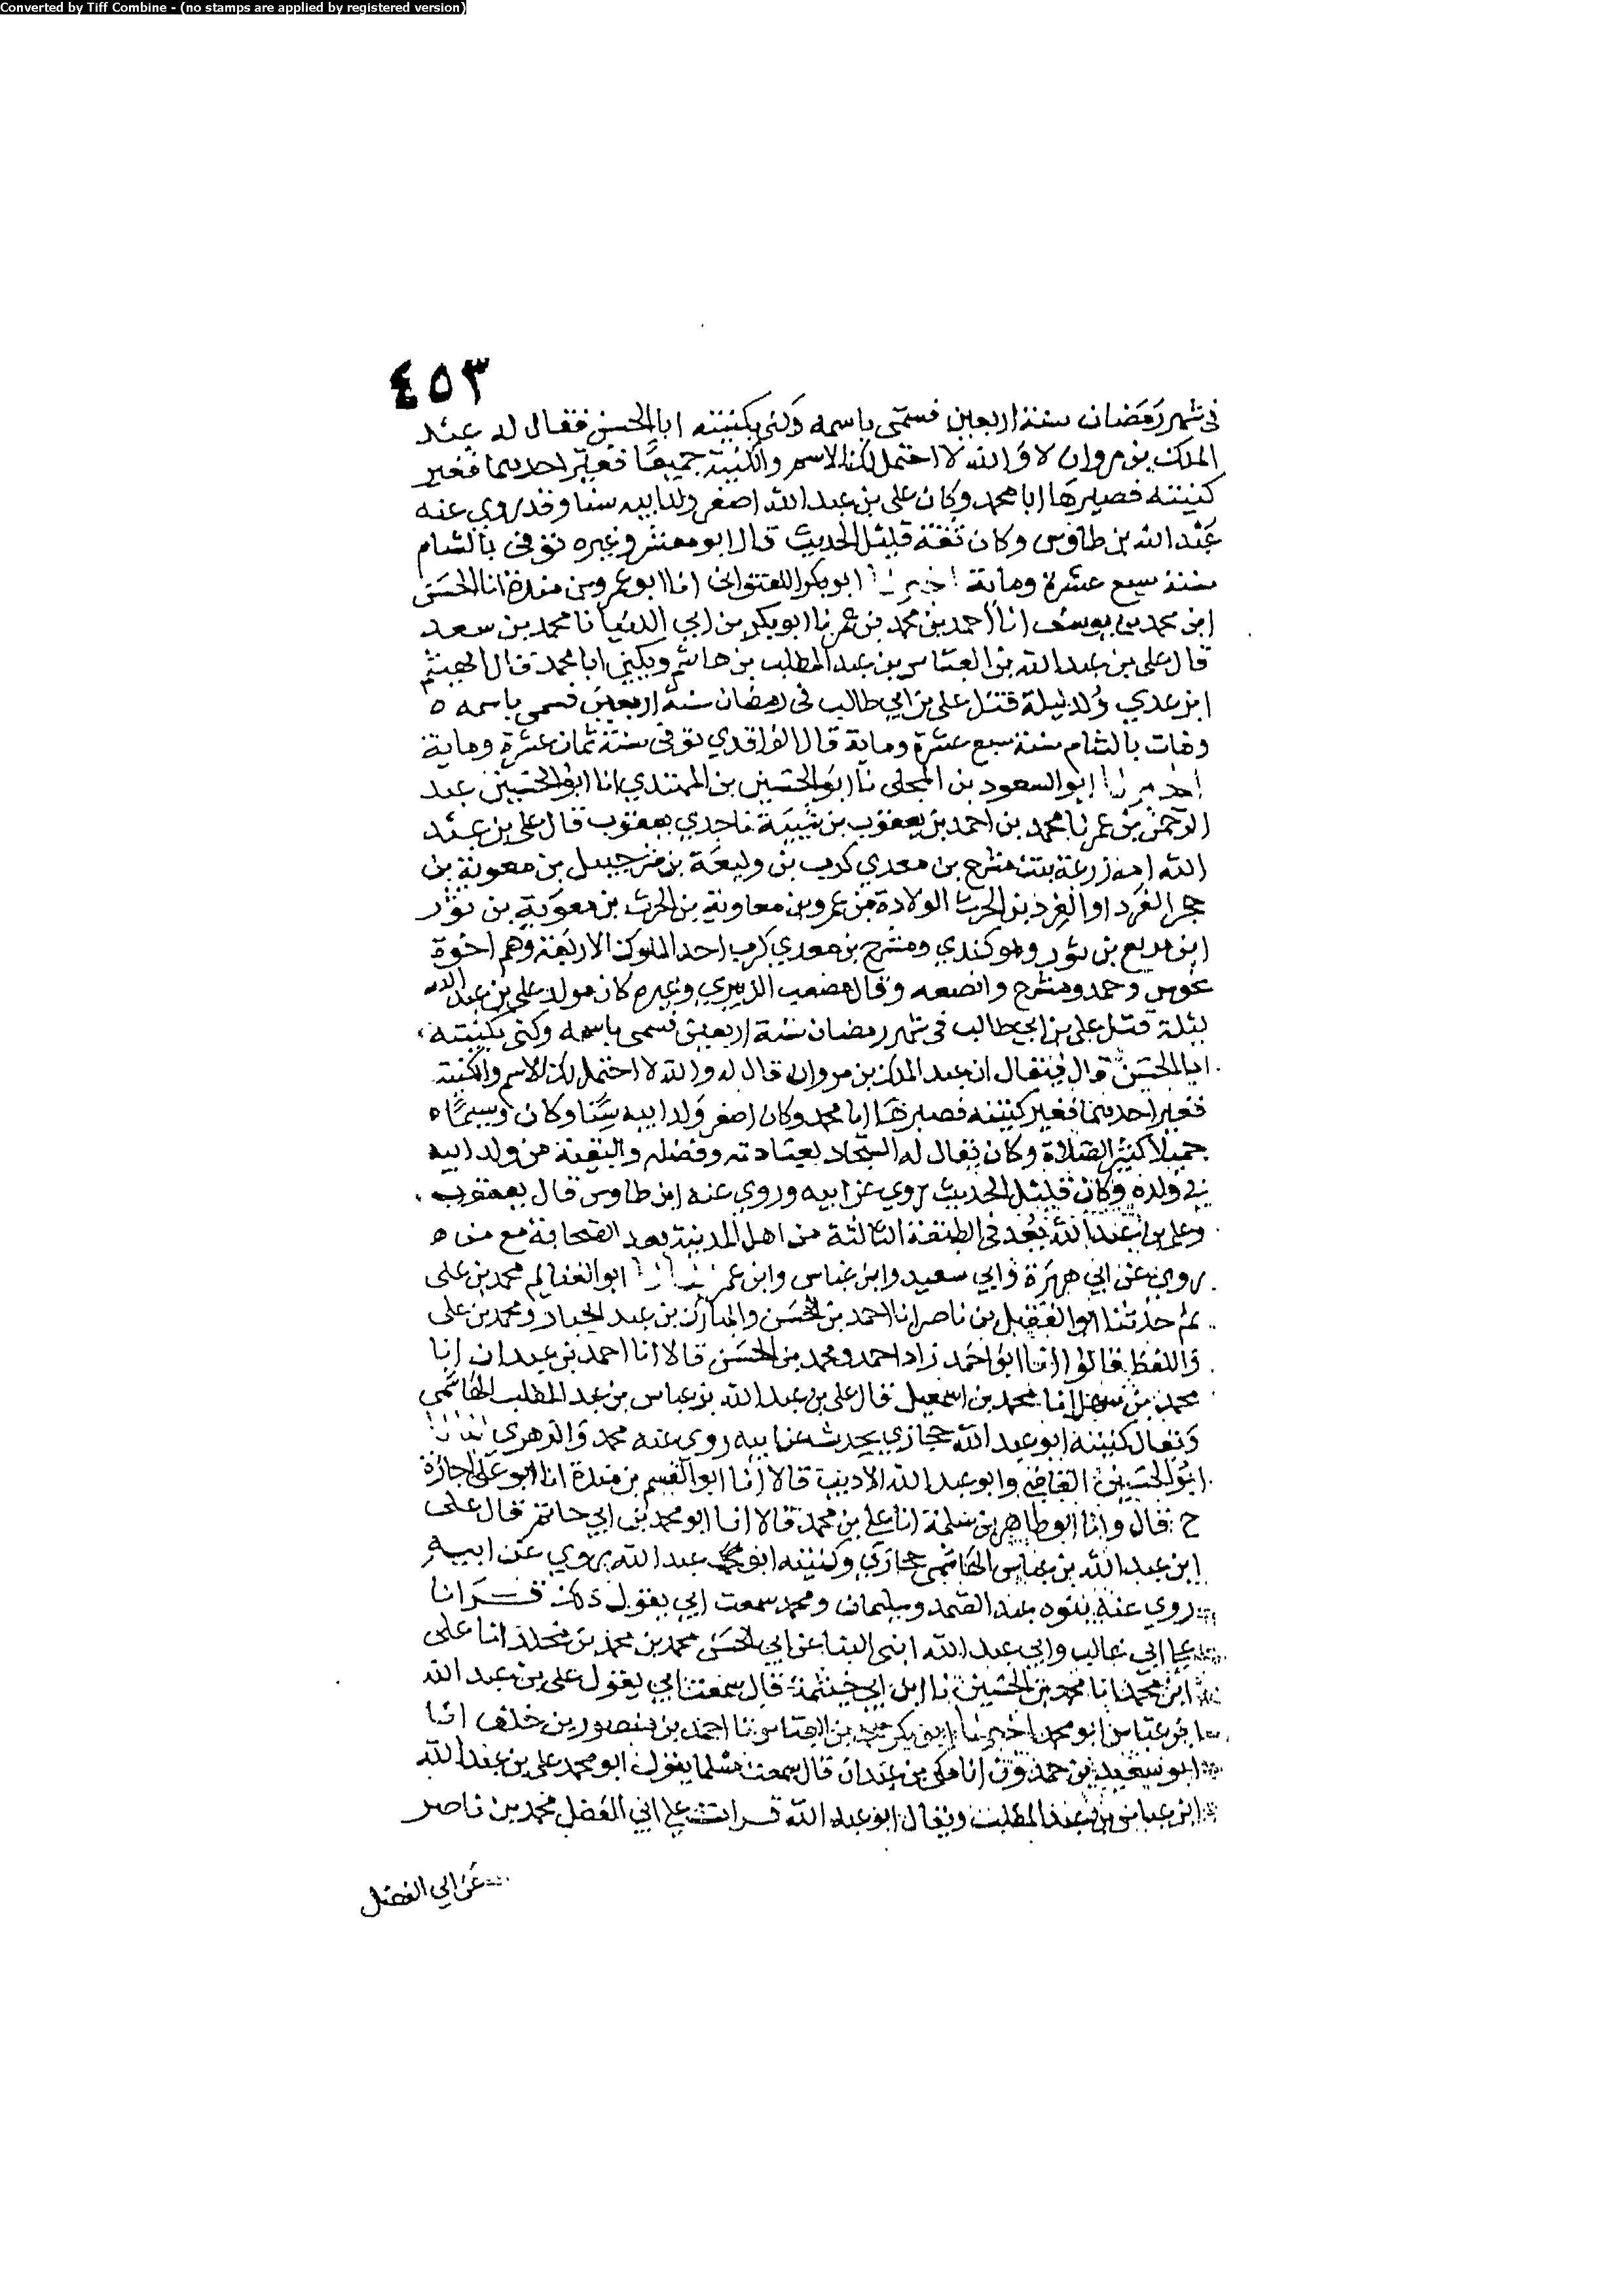 Converted by Tiff Combine - (no stamps are applied by registered version)
٤٥٣
فى شهر رمضان سنة اربعين فسمّى باسمه وكنى بكنيته ابا الحسن فقال له عبد
الملك بن مروان لا والله لا احتمل لك الاسم والكنية جميعًا فغيّر احديهما فغير
كنيته فصيرها ابا محمد وكان على بن عبد الله اصغر ولد ابيه سنا وقد روى عنه
عبد الله بن طاوس وكان ثقة قليل الحديث قال ابو معشر وغيره توفى بالشام
سنة سبع عشرة وماية اخبرنا ابو بكر اللفتوانى انا ابو عمرو بن مندة انا الحسن
ابن محمد بن يوسف انا احمد بن محمد بن عمر نا ابو بكر بن ابي الدنيا نا محمد بن سعد
قال على بن عبد الله بن العباس بن عبد المطلب بن هاشم ويكنى ابا محمد قال الهيثم
ابن عدي وُلد ليلة قتل على بن ابي طالب فى رمضان سنة اربعين فسمى باسمه ه
ومات بالشام سنة سبع عشرة وماية قال الواقدي توفى سنة ثمان عشرة وماية
اخبرنا ابو السعود بن المجلى نا ابو الحسين بن المهتدي انا ابو الحسين عبد
الرحمن بن عمر نا محمد بن احمد بن يعقوب بن شيبة نا جدي يعقوب قال على بن عبد
الله امه زرعة بنت مشرح بن معدي كرب بن وليعة بن شرحبيل بن معوية بن
حجر القرد او الفرد بن الحرث الولادة بن عمرو بن معاوية بن الحرث بن معوية بن ثور
ابن مربع بن ثور وهو كندي ومشرح بن معدي كرب احد الملوك الاربعة وهم اخوة
مخوس وحمد ومشرح وابضعه وقال مصعب الزبيري وغيره كان مولد على بن عبد الله
ليلة قتل على بن ابي طالب فى شهر رمضان سنة اربعين فسمى باسمه وكنى بكنيته
ابا الحسن قال فيقال ان عبد الملك بن مروان قال له والله لا احتمل لك الاسم والكنية
فغير احديهما فغير كنيته فصيرها ابا محمد وكان اصغر ولد ابيه سنًا وكان وسيمًا ه
جميلا كثير الصلاة وكان يقال له السجّاد لعبادته وفضله والبقية من ولد ابيه
فى ولده وكان قليل الحديث روى عن ابيه وروى عنه ابن طاوس قال يعقوب
وعلى بن عبد الله يُعد فى الطبقة الثالثة من اهل المدينة بعد الصحابة مع من ه
روى عن ابي هريرة وابي سعيد وابن عباس وابن عمر انبانا ابو الغنايم محمد بن على
ثم حدثنا ابو الفضل بن ناصر انا احمد بن الحسن والمبارك بن عبد الجبار ومحمد بن على
واللفظ له قالوا انا ابو احمد زاد احمد ومحمد بن الحسن قالا انا احمد بن عبدان انا
محمد بن سهل انا محمد بن اسمعيل قال على بن عبد الله بن عباس بن عبد المطلب الهاشمى
ويقال كنيته ابو عبد الله حجازي يحدث عن ابيه روى عنه محمد والزهري انبانا
ابو الحسين القاضي وابو عبد الله الاديب قالا انا ابو القسم بن مندة انا ابو على اجازة
ح قال وانا ابو طاهر بن سلمة انا على بن محمد قالا انا ابو محمد بن ابي حاتم قال على
ابن عبد الله بن عباس الهاشمى حجازي وكنيته ابو محمد عبد الله يروي عن ابيه
روى عنه بنوه عبد الصمد وسليمان ومحمد سمعت ابي يقول ذلك قرانا
على ابي غالب وابي عبد الله ابنى البنا عن ابي الحسن محمد بن محمد بن مخلد انا على
ابن محمد انا محمد بن الحسين نا ابن ابي خيثمة قال سمعت ابي يقول على بن عبد الله
ابن عباس ابو محمد اخبرنا ابو بكر محمد بن العباس نا احمد بن منصور بن خلف انا
ابو سعيد بن حمدون انا مكى بن عبدان قال سمعت مسلما يقول ابو محمد على بن عبد الله
ابن عباس بن عبد المطلب ويقال ابو عبد الله قرات على ابي الفضل محمد بن ناصر
عن ابي الفضل